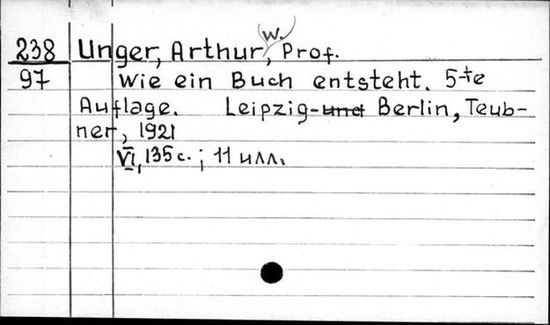 W.
238 Unger, Arthur, Prof.
97 Wie ein Buch entsteht. 5-te
Auflage. Leipzig-und Berlin, Teub-
ner, 1921
VI, 135 с. ; 11 илл.